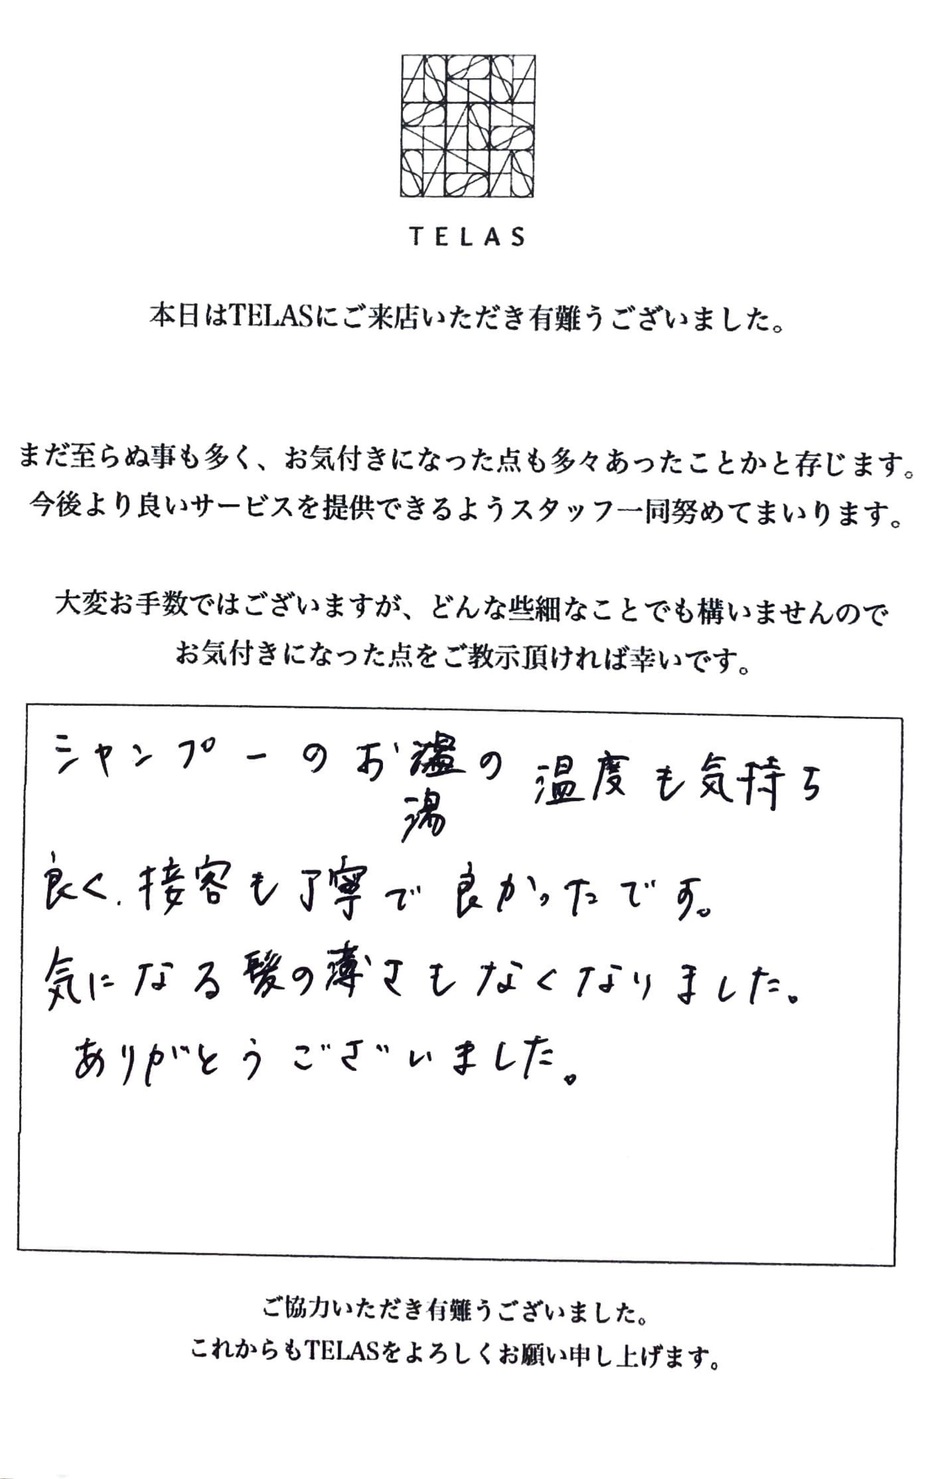 TELAS
本日はTELASにご来店いただき有難うございました。
まだ至らぬ事も多く、お気付きになった点も多々あったことかと存じます。
今後より良いサービスを提供できるようスタッフ一同努めてまいります。
大変お手数ではございますが、どんな些細なことでも構いませんので
お気付きになった点をご教示頂ければ幸いです。
シャンプーのお湯の温度も気持ち
良く、接客も丁寧で良かったです。
気になる髪の薄さもなくなりました。
ありがとうございました。
ご協力いただき有難うございました。
これからもTELASをよろしくお願い申し上げます。